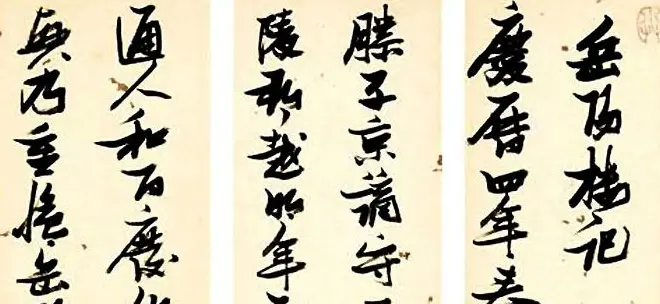 岳陽樓記
慶曆四年春
滕子京謫守
陵郡越明年
通人和百廢
興乃重修岳